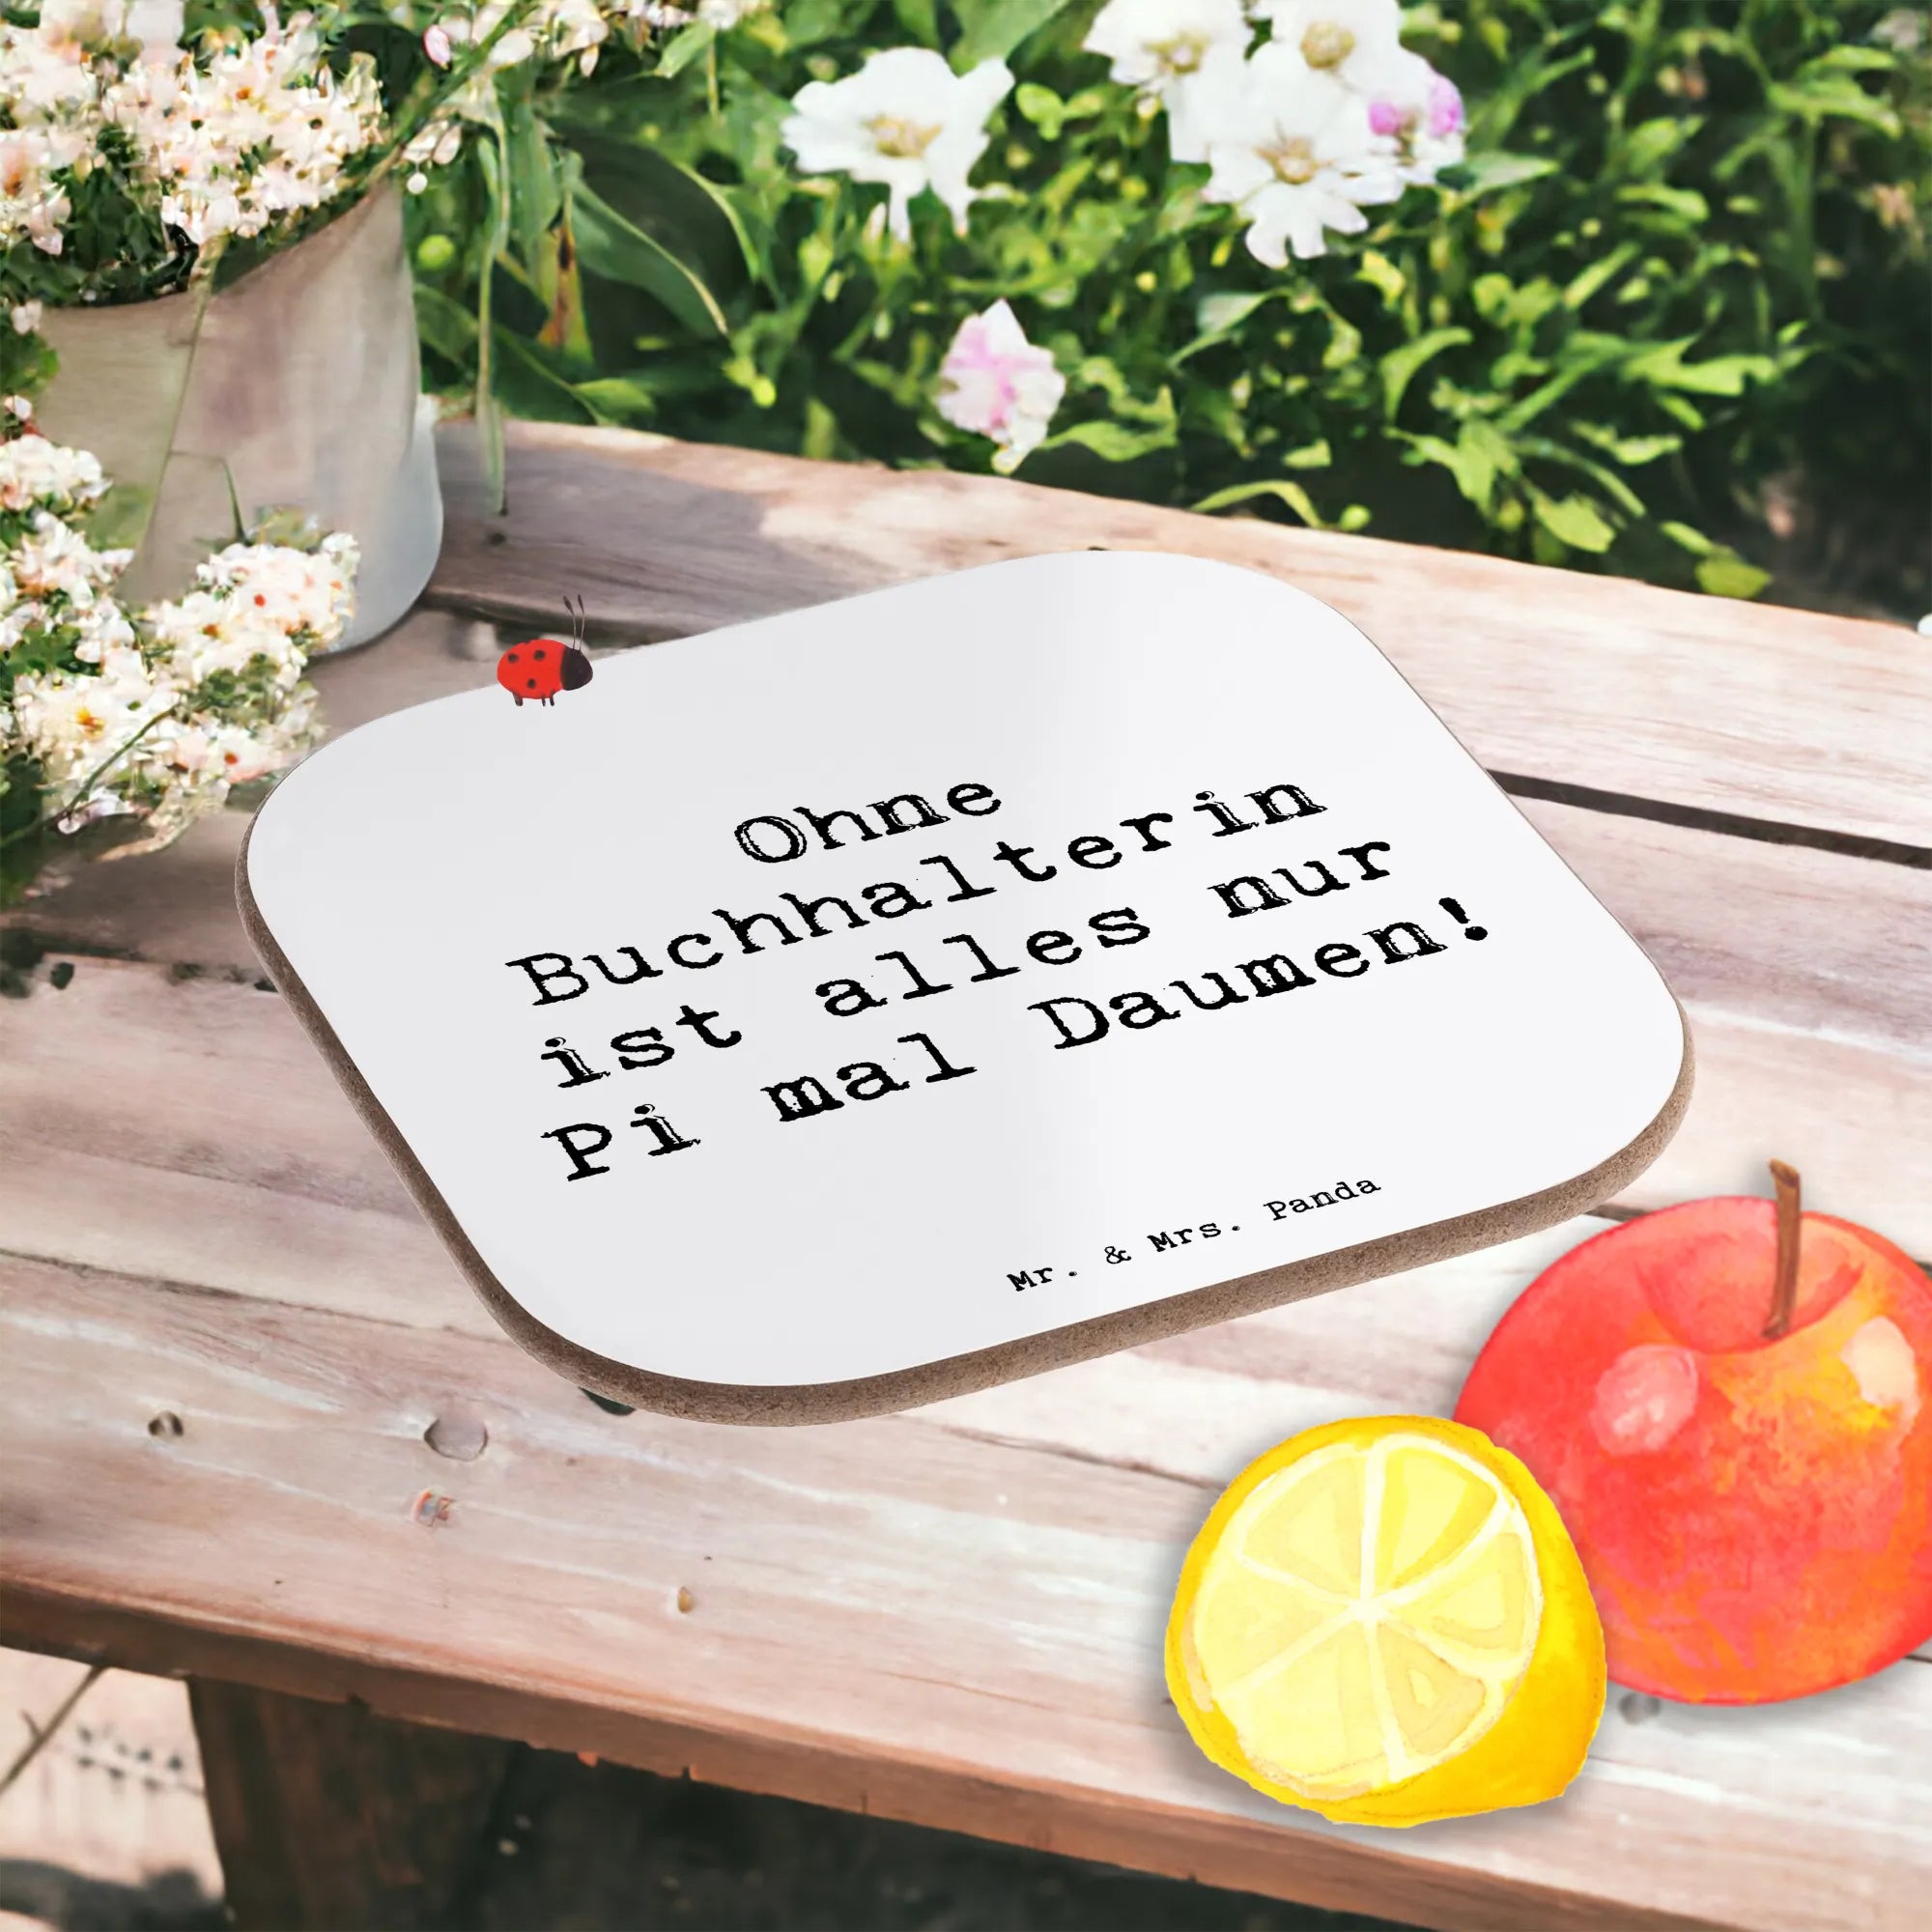 Ohne
Buchhalterin
ist alles nur
Pi mal Daumen!
Mr. & Mrs. Panda